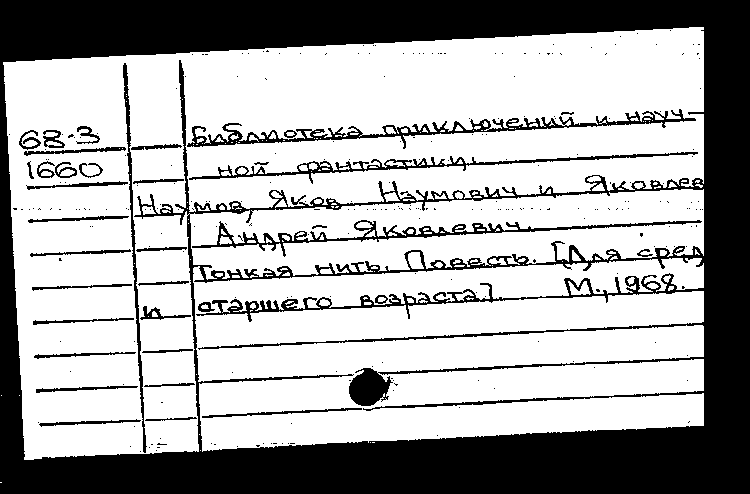 68-3 Библиотека приключений и науч-
1660 ной фантастики.
Наумов, Яков Наумович и Яковлев
Андрей Яковлевич.
Тонкая нить. Повесть. [Для сред
и старшего возраста]. М., 1968.